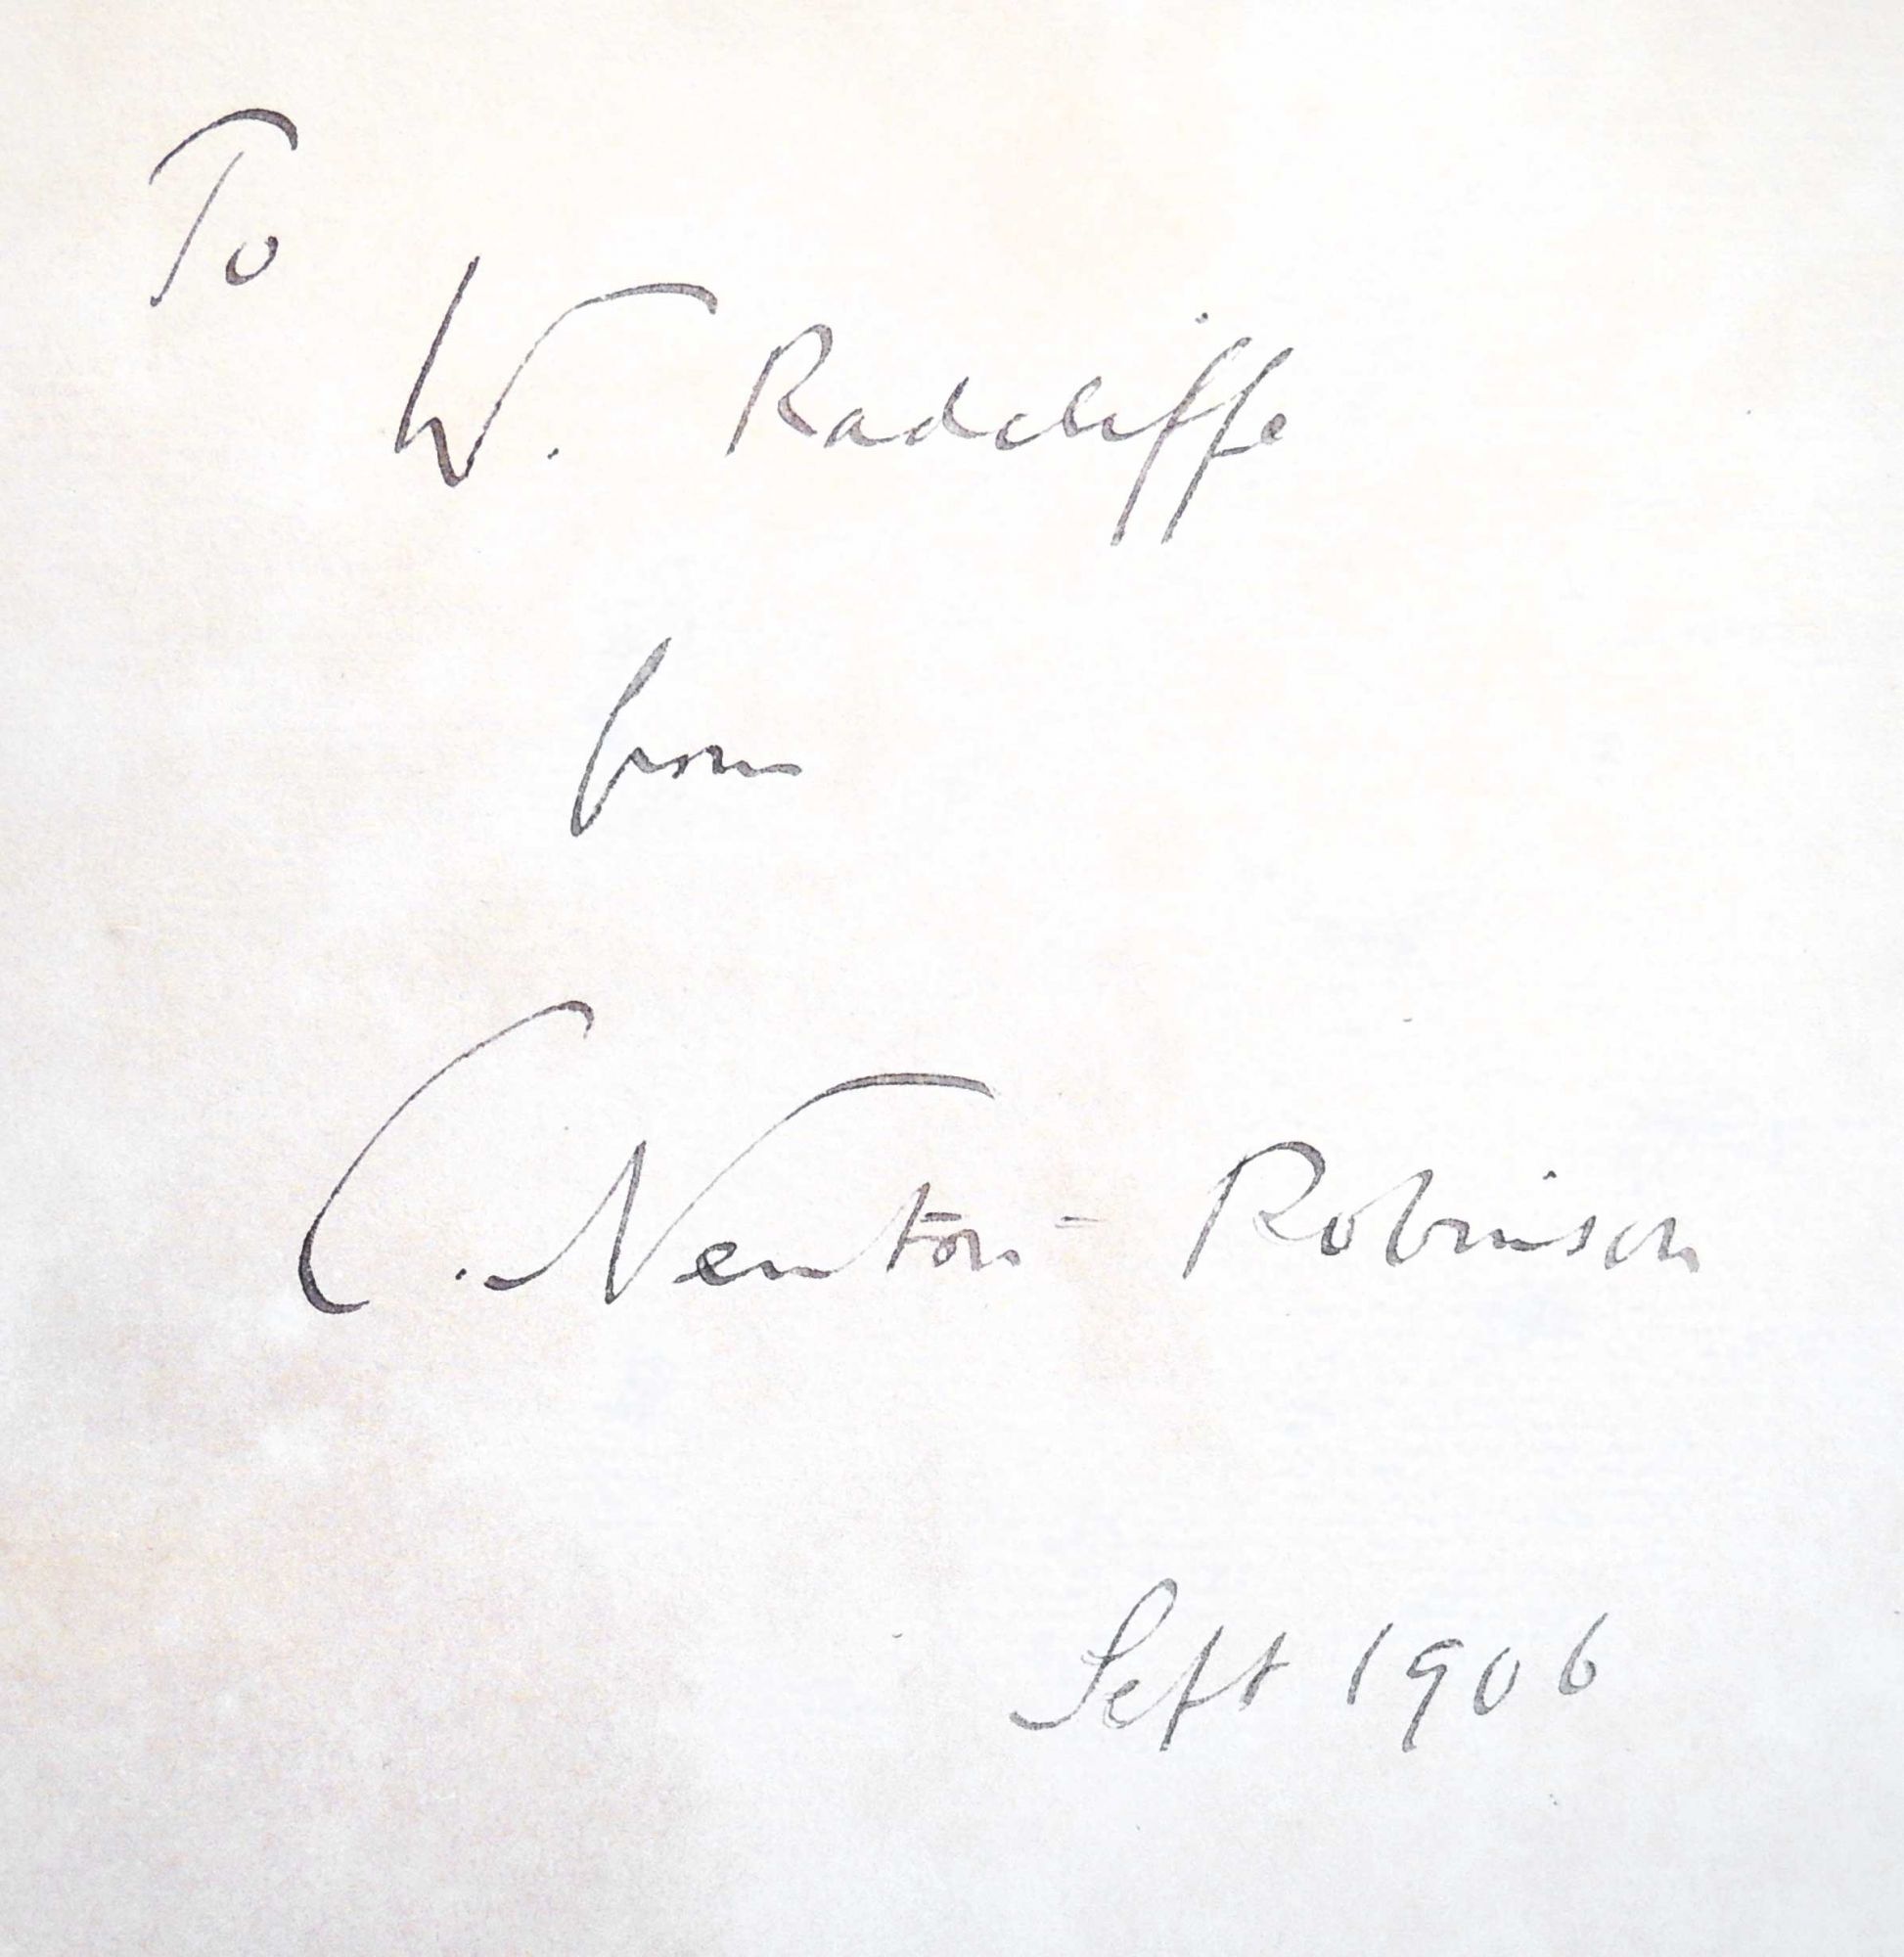 To
W. Radcliffe
from
C. Newton-Robinson
Sept 1906